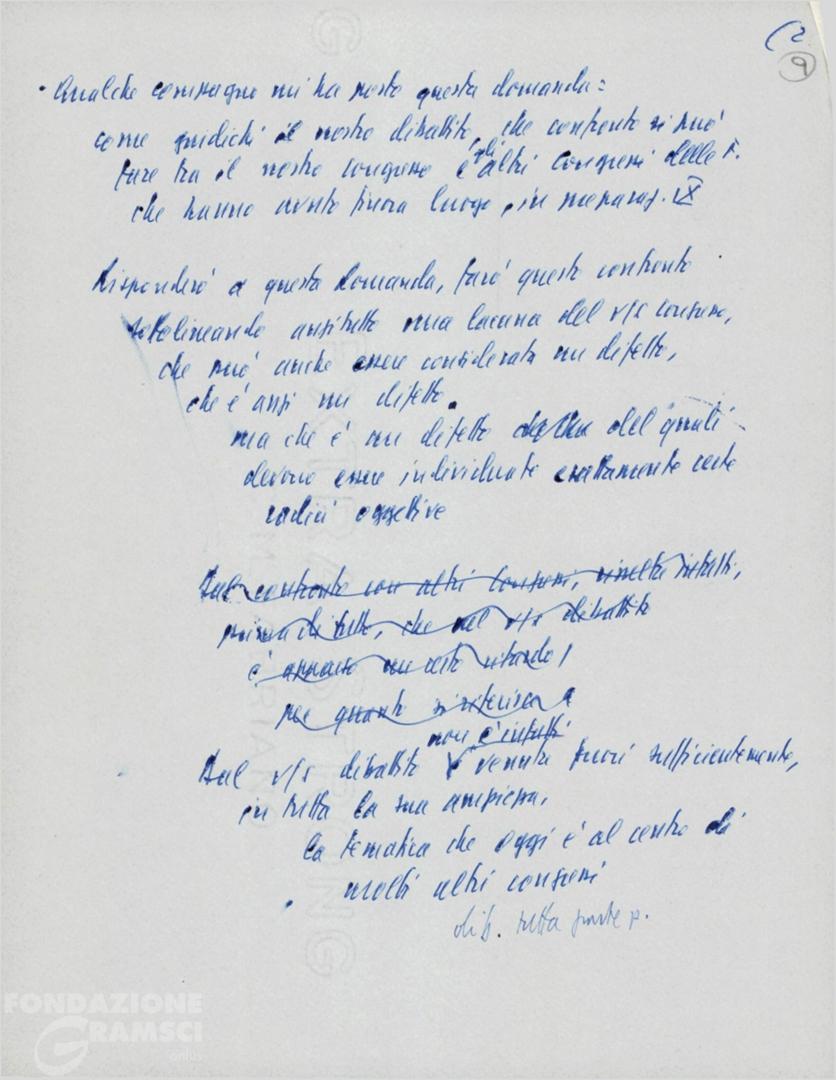 (2
9
· Qualche compagno mi ha posto questa domanda:
come giudichi il nostro dibattito, che confronto si può
fare tra il nostro congresso e gli altri congressi delle F.
che hanno avuto finora luogo, in preparaz. IX
Risponderò a questa domanda, farò questo confronto
sottolineando anzitutto una lacuna del v/s congresso,
che può anche essere considerata un difetto,
che è anzi un difetto.
ma che è un difetto del quali
devono essere individuate esattamente certe
radici oggettive
Dal confronto con altri congressi, risulta infatti,
prima di tutto, che nel v/s dibattito
è apparso un certo ritardo,
per quanto si riferisce a
non è infatti
Dal v/s dibattito è venuta fuori sufficientemente,
in tutta la sua ampiezza,
la tematica che oggi è al centro di
molti altri congressi
dib. sulla p.
EXTRA STRONG
FONDAZIONE
GRAMSCI
onlus